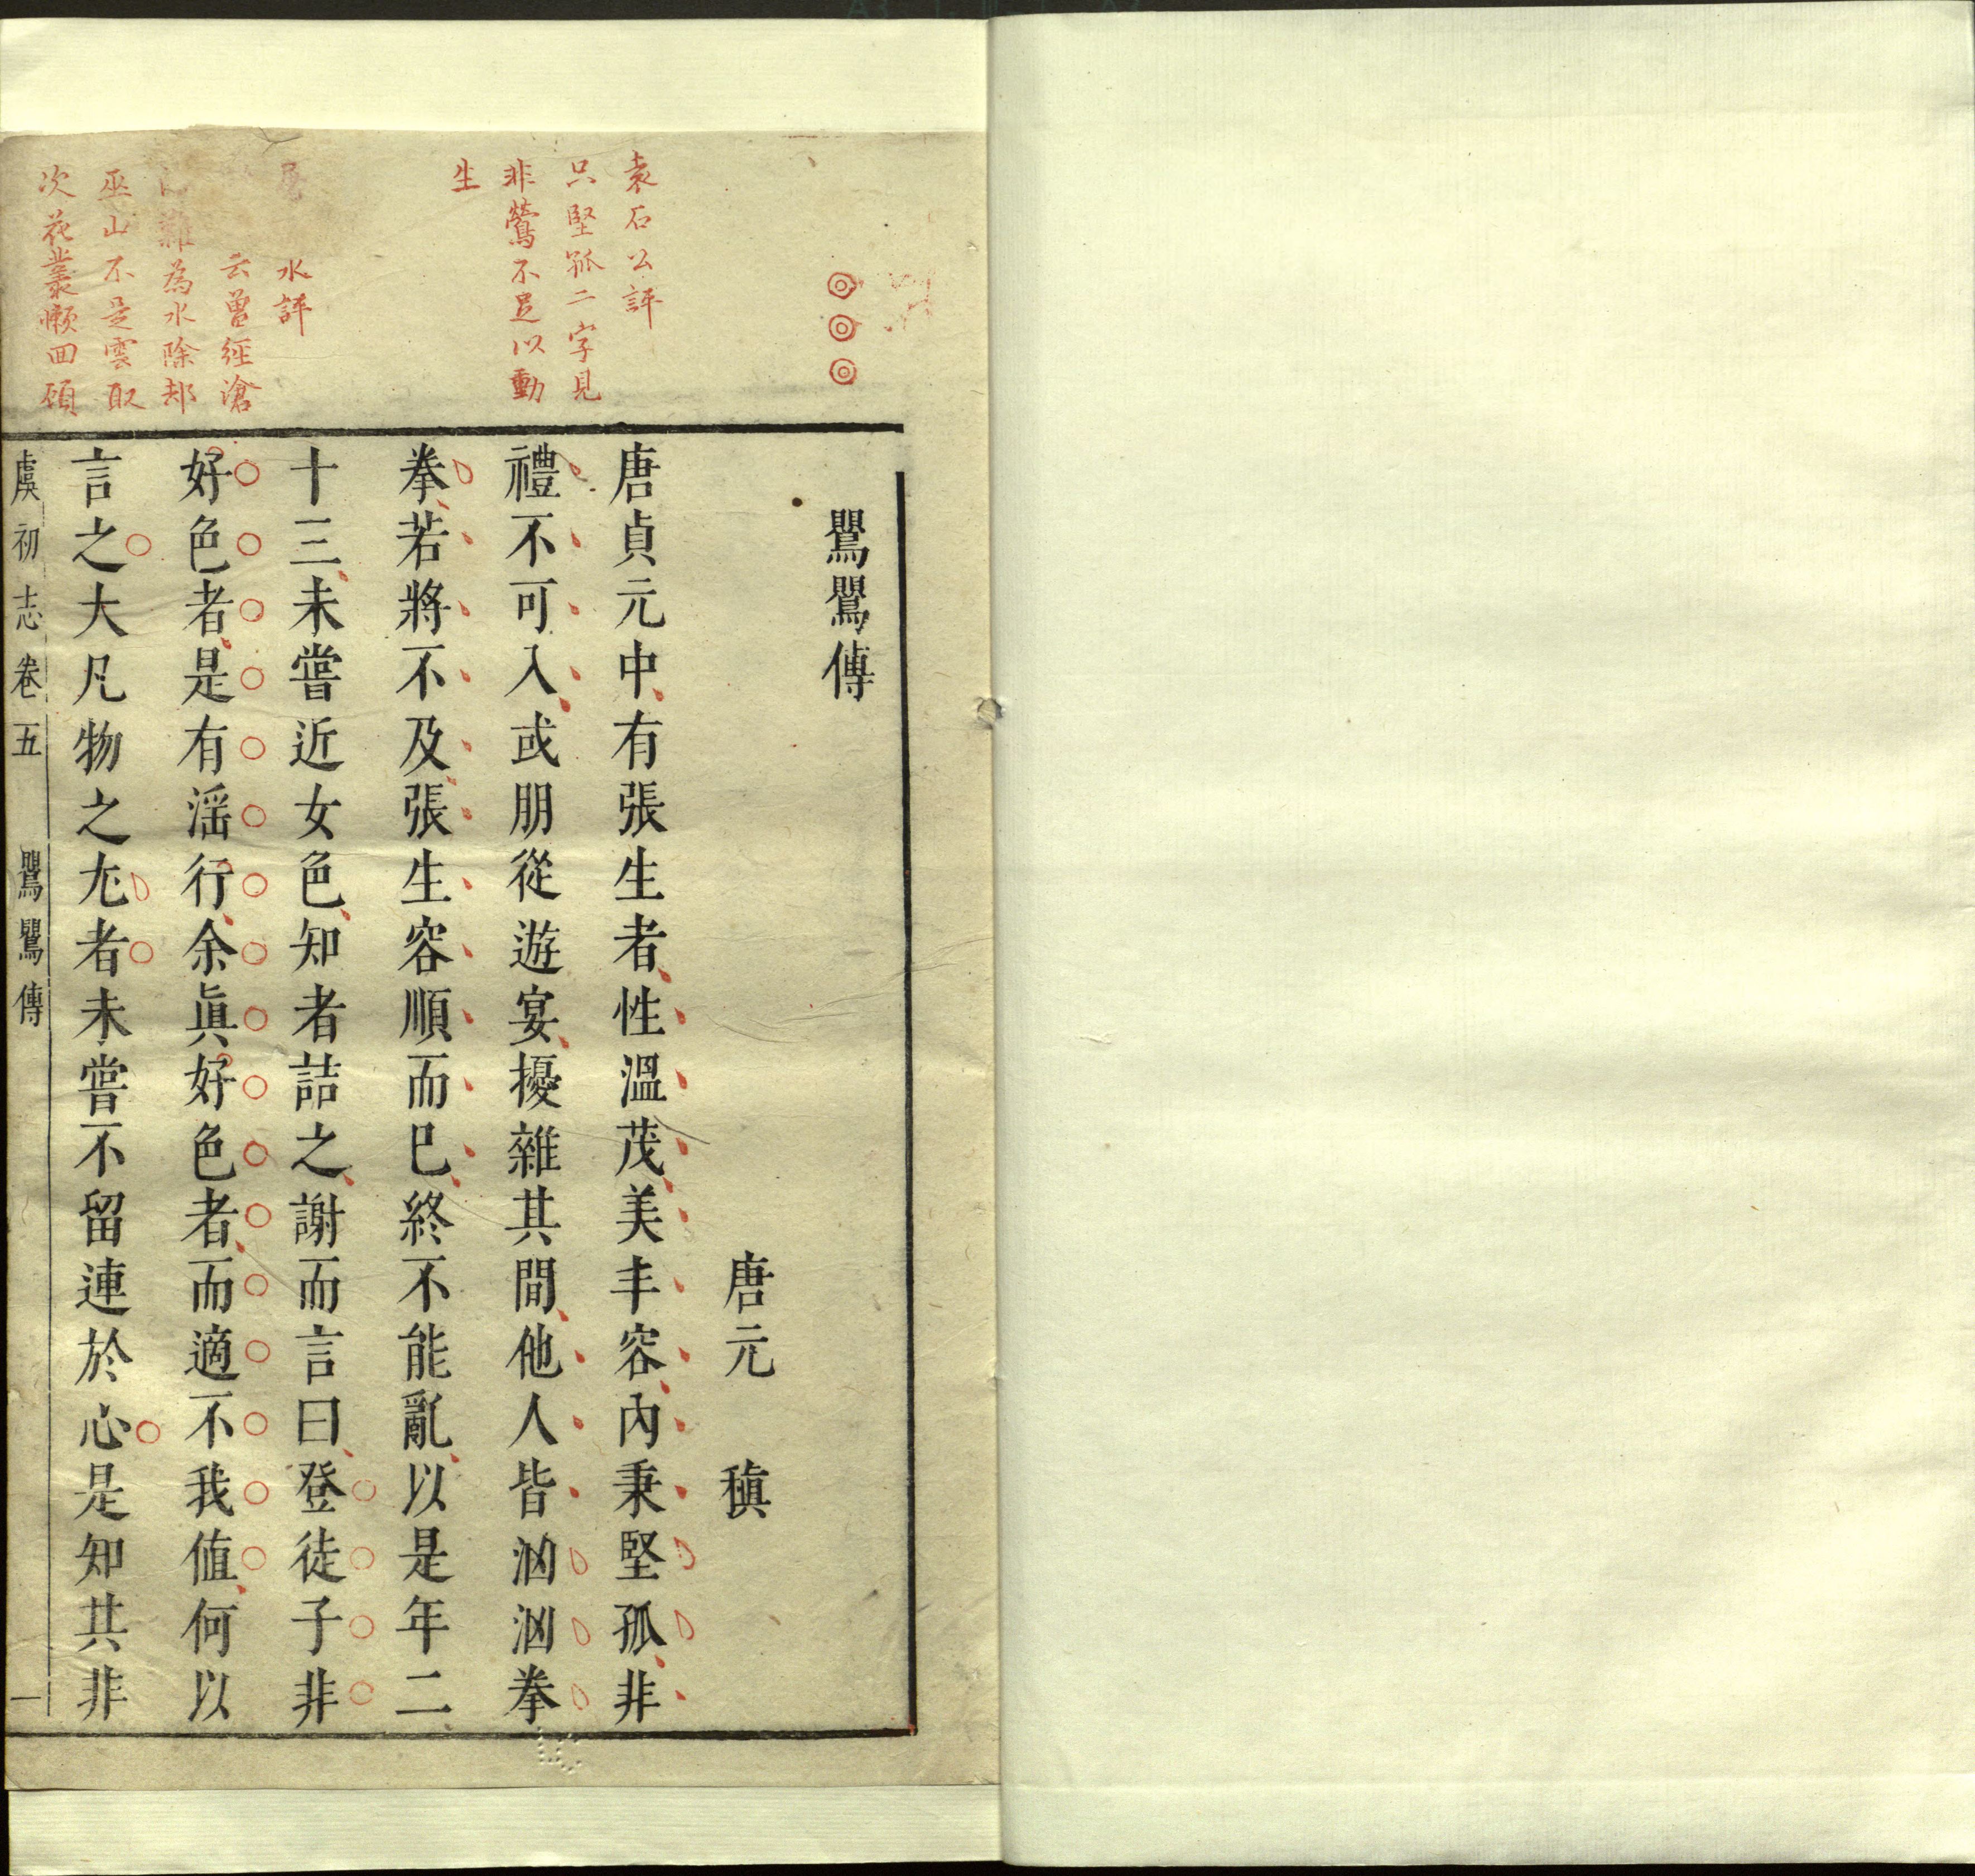 鸎鸎傳
唐元稹
唐貞元中有張生者性溫茂美丰容內秉堅孤非
禮不可入或朋從遊宴擾雜其間他人皆汹汹拳
拳若將不及張生容順而已終不能亂以是年二
十三未嘗近女色知者詰之謝而言曰登徒子非
好色者是有淫行余眞好色者而適不我值何以
言之大凡物之尤者未嘗不留連於心是知其非
袁石公評
只堅孤二字見
非鶯不足以動
生
水評
云曾經滄
難為水除却
巫山不是雲取
次花叢懶回顧
虞初志卷五 鸎鸎傳 一